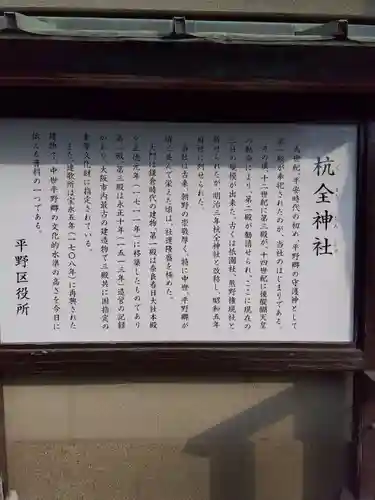 杭全神社
九世紀、平安時代の初め、平野郷の守護神として
第一殿が奉祀されたのが、当社のはじまりである。
その後、十二世紀に第三殿が、十四世紀に後醍醐天皇
の勅命により、第二殿が勧請せられ、ここに現在の
三社の形態が出来た。古くは祇園社、熊野権現社と
称せられたが明治三年杭全神社と改称し、昭和五年
府社に列せられた。
当社は古来、朝野の崇敬厚く、特に中世、平野郷が
町と並んで栄えた頃は、社運隆盛を極めた。
大門は鎌倉時代の建物、第一殿は奈良春日大社本殿
を正徳元年(一七一一年)に移築したものであり
第二殿・第三殿は永正十年(一五一三年)造営の記録
があり、大阪市内最古の建造物で三殿共に国指定の
重要文化財に指定されている。
また連歌所は宝永五年(一七〇八年)に再興された
建物で、中世平野郷の文化的水準の高さを今日に
伝える資料の一つである。
平野区役所